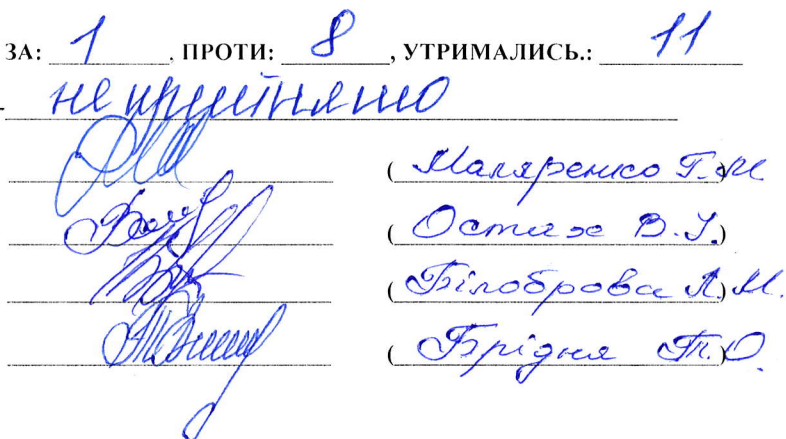 ЗА: 1, ПРОТИ: 8, УТРИМАЛИСЬ.: 11
не прийнято
(Маляренко Г.М)
(Остах В.І.)
(Білоброва Л.М.)
(Брідня Т.О.)